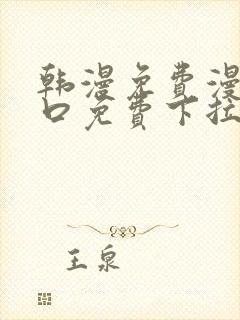 韩漫免费漫
口免费下拉
王泉